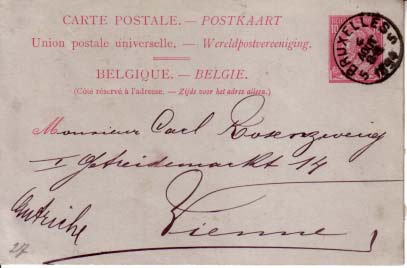 CARTE POSTALE. — POSTKAART
Union postale universelle. — Wereldpostvereeniging.
BELGIQUE. — BELGIE.
(Côté réservé à l'adresse. — Zijde voor het adres alleen.)
BRUXELLES 5
Monsieur Carl Rosenzweig
I Getreidemarkt 14
Autriche
Vienne
27